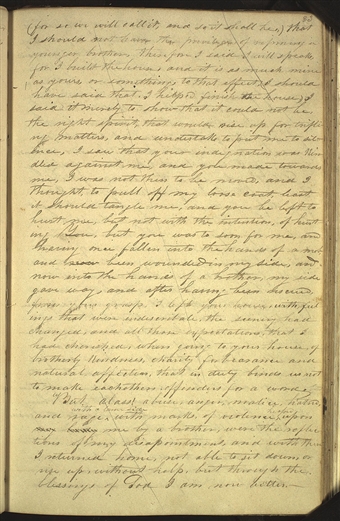 83
(for so we will call it, and so it shall be,) that
I should not have the privilege of reproving a
younger brother. Therefore I said I will speak,
for I built the house, and it is as much mine
as yours or something to that effect, (I should
have said that I helped finish the house,) I
said it merely to show that it could not be
the right spirit, that would rise up for trifl-
ing matters, and undertake to put me to sil-
ence, I saw that your indignation was kin-
dled against me, and you made towards
me, I was not then to be moved, and I
thought, to pull off my loose coat, least
it should tangle me, and you be left to
hurt me, but not with the intention, of hurt-
ing you, but you was to soon for me, and
having once fallen into the hands of a mob
and been wounded in my side, and
now into the hands of a brother, my side
gave way, and after having been rescued
from your grasp, I left your house, with feel-
ings that were indescribale, the scenery had
changed, and all those expectations, that I
had cherished, when going to your house, of
brotherly kindness, charity forbearance and
natural affection, that in duty binds us not
to make eachothers offenders for a word.
But alass! abuse, anger, malice, hatred,
and rage, with a lame side with marks, of violence upon
me by a brother, were the reflec-
tions of my disapointment, and with these
I returned home, not able to sit down, or
rise up, without help, but through the
blessings of God I am now better.